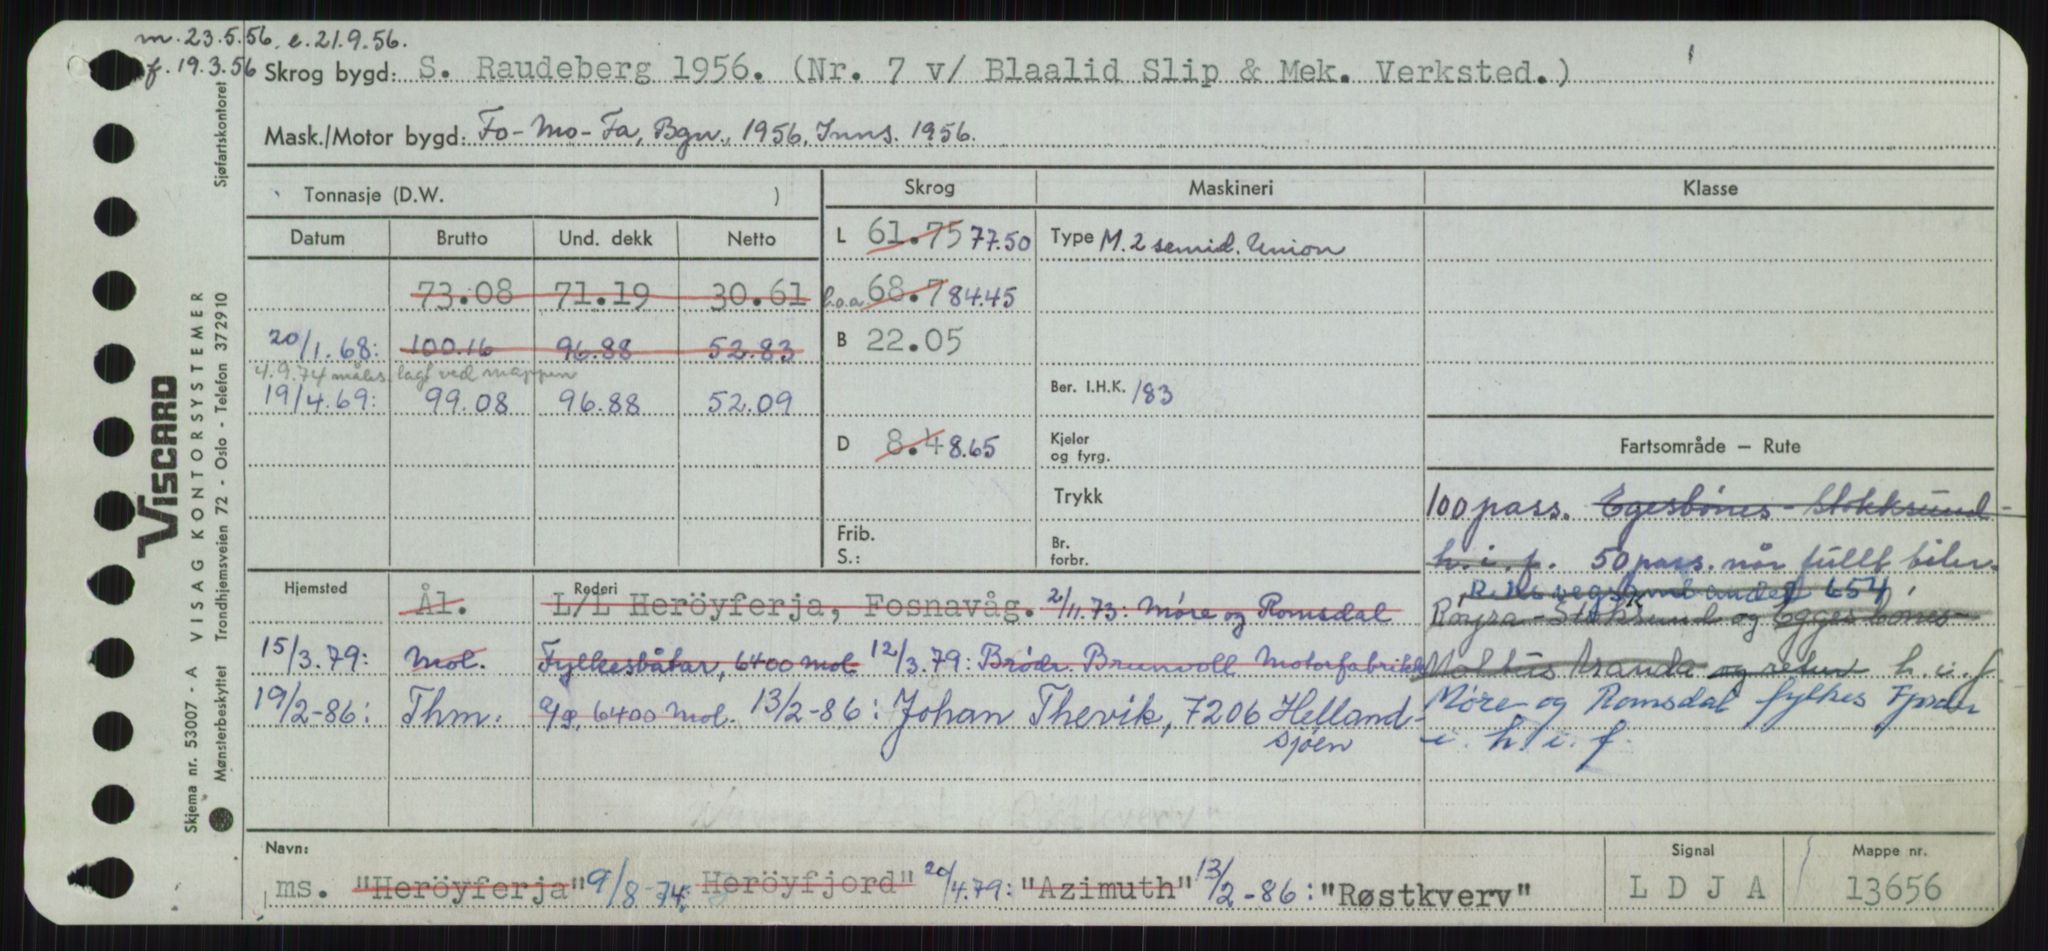 m. 23.5.56. e. 21.9.56.
f. 19.3.56 Skrog bygd: S. Raudeberg 1956. (Nr. 7 v/ Blaalid Slip & Mek. Verksted.)
Mask./Motor bygd: Fo-Mo-Fa, Bgn., 1956. Inns. 1956.
Tonnasje (D.W. )
Skrog
Maskineri
Klasse
Datum Brutto Und. dekk Netto
73.08 71.19 30.61
20/1.68: 100.16 96.88 52.83
4.9.74 måles. lagt ved mappen
19/4.69: 99.08 96.88 52.09
L 61.75 77.50
l.o.a. 68.7 84.45
B 22.05
D 8.4 8.65
Frib.
S.:
Type M. 2 semid. Union
Ber. I.H.K. 183
Kjeler
og fyrg.
Trykk
Br.
forbr.
Fartsområde — Rute
100 pass. Egesbönes - Stokksund -
h. i. f. 50 pass. når fullt biler.
654
Røyra - Stoksund og Eggesbönes
Årvanda og retur h. i. f.
Møre og Romsdal fylkes Fjorder
i. h. i. f.
Hjemsted
Rederi
Ål. L/L Heröyferja, Fosnavåg. 2/11.73: Møre og Romsdal
15/3.79: Mol. Fylkesbåtar, 6400 Mol 12/3.79: Brödr. Brunvoll Motorfabrikk
19/2-86: Thm. a/s, 6400 Mol. 13/2-86: Johan Thevik, 7206 Helland-
sjöen
Navn:
ms. "Heröyferja" 9/8-74: Heröyfjord" 20/4.79: "Azimuth" 13/2-86: "Røstkverv"
Signal
L D J A
Mappe nr.
13656
VISCARD
VISAG KONTORSYSTEMER
Skjema nr. 53007 - A
Mønsterbeskyttet Trondhjemsveien 72 - Oslo - Telefon 372910 Sjøfartskontoret